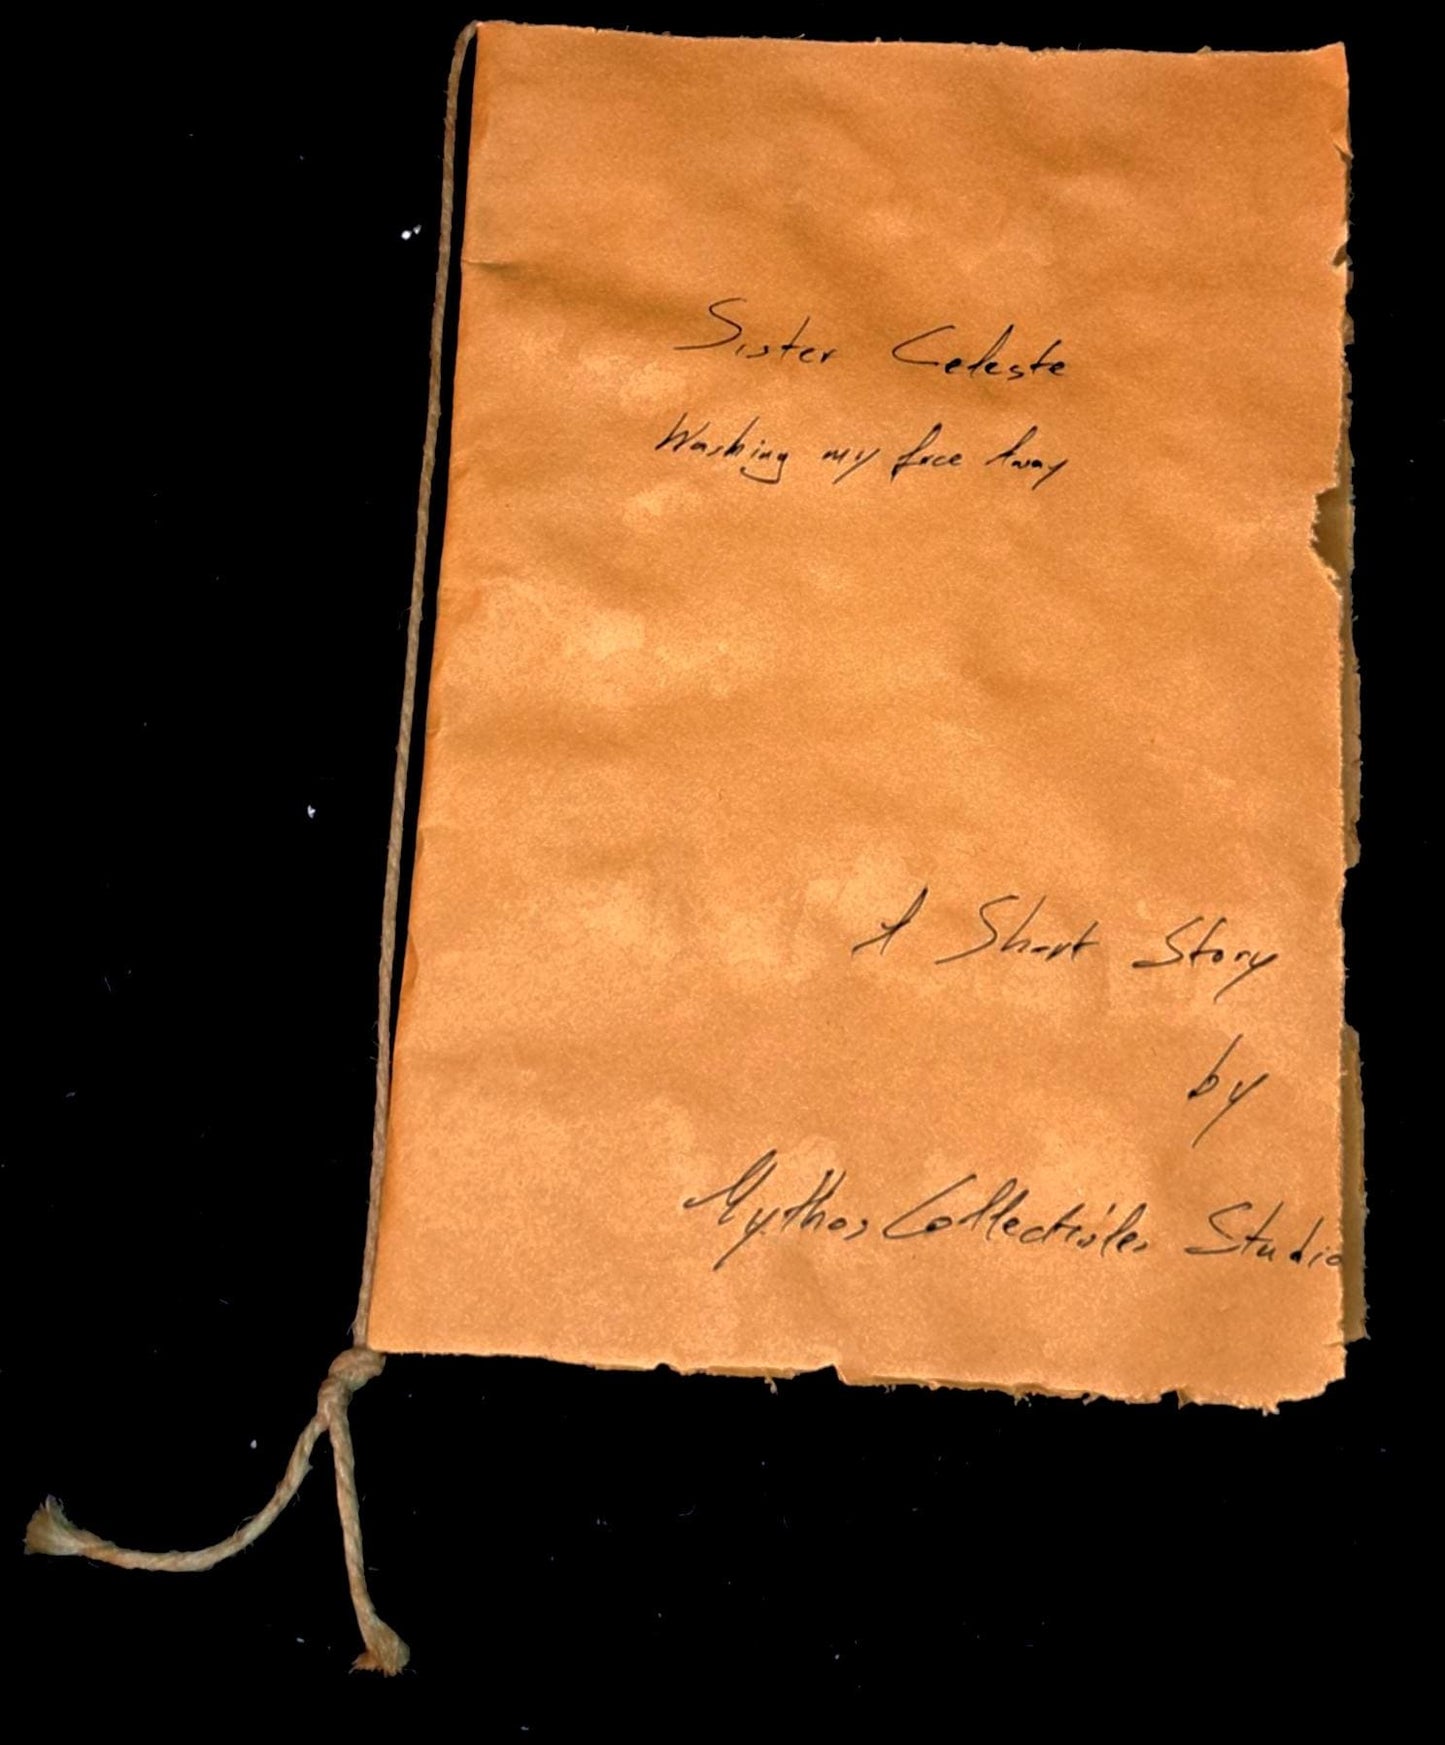 Sister Celeste
Washing my face Away
A Short Story
by
Mythos Collectibles Studio